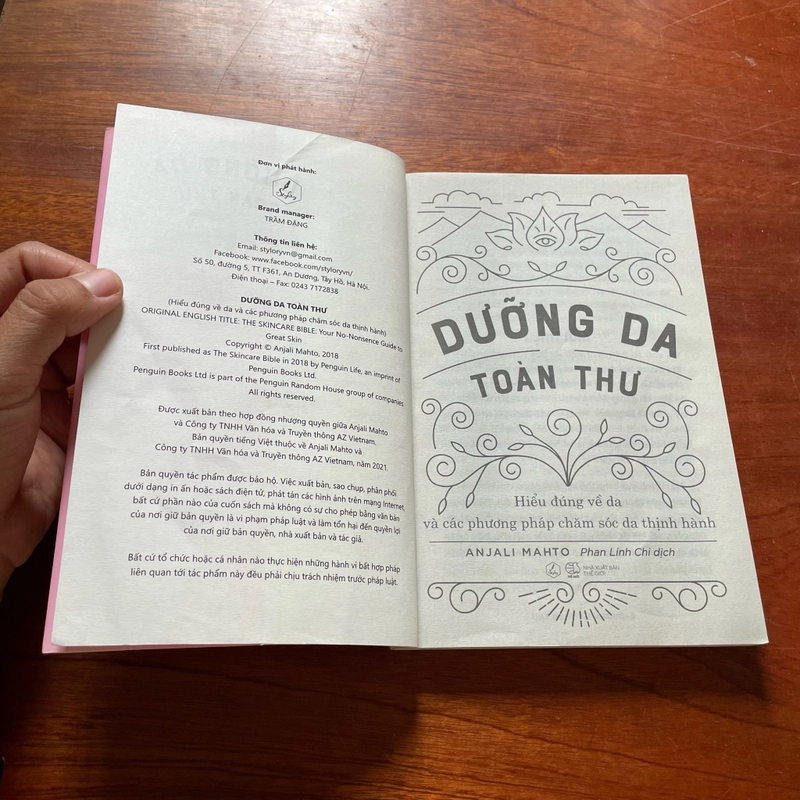 Đơn vị phát hành:
Brand manager:
TRÂM ĐẶNG
Thông tin liên hệ:
Email: styloryvn@gmail.com
Facebook: www.facebook.com/styloryvn/
Số 50, đường 5, TT F361, An Dương, Tây Hồ, Hà Nội.
Điện thoại – Fax: 0243 7172838
DƯỠNG DA TOÀN THƯ
(Hiểu đúng về da và các phương pháp chăm sóc da thịnh hành)
ORIGINAL ENGLISH TITLE: THE SKINCARE BIBLE: Your No-Nonsense Guide to
Great Skin
Copyright © Anjali Mahto, 2018
First published as The Skincare Bible in 2018 by Penguin Life, an imprint of
Penguin Books Ltd.
Penguin Books Ltd is part of the Penguin Random House group of companies
All rights reserved.
Được xuất bản theo hợp đồng nhượng quyền giữa Anjali Mahto
và Công ty TNHH Văn hóa và Truyền thông AZ Vietnam.
Bản quyền tiếng Việt thuộc về Anjali Mahto và
Công ty TNHH Văn hóa và Truyền thông AZ Vietnam, năm 2021.
Bản quyền tác phẩm được bảo hộ. Việc xuất bản, sao chụp, phân phối
dưới dạng in ấn hoặc sách điện tử, phát tán các hình ảnh trên mạng Internet,
bất cứ phần nào của cuốn sách mà không có sự cho phép bằng văn bản
của nơi giữ bản quyền là vi phạm pháp luật và làm tổn hại đến quyền lợi
của nơi giữ bản quyền, nhà xuất bản và tác giả.
Bất cứ tổ chức hoặc cá nhân nào thực hiện những hành vi bất hợp pháp
liên quan tới tác phẩm này đều phải chịu trách nhiệm trước pháp luật.
DƯỠNG DA
TOÀN THƯ
Hiểu đúng về da
và các phương pháp chăm sóc da thịnh hành
ANJALI MAHTO Phan Linh Chi dịch
NHÀ XUẤT BẢN
THẾ GIỚI